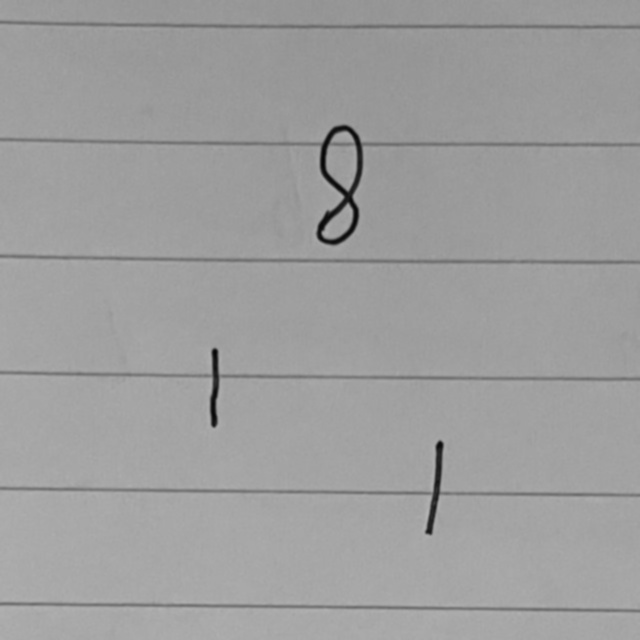 8
1
1